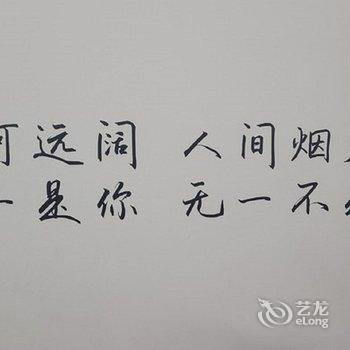 可远阔 人间烟
一是你 无一不
艺龙
eLong